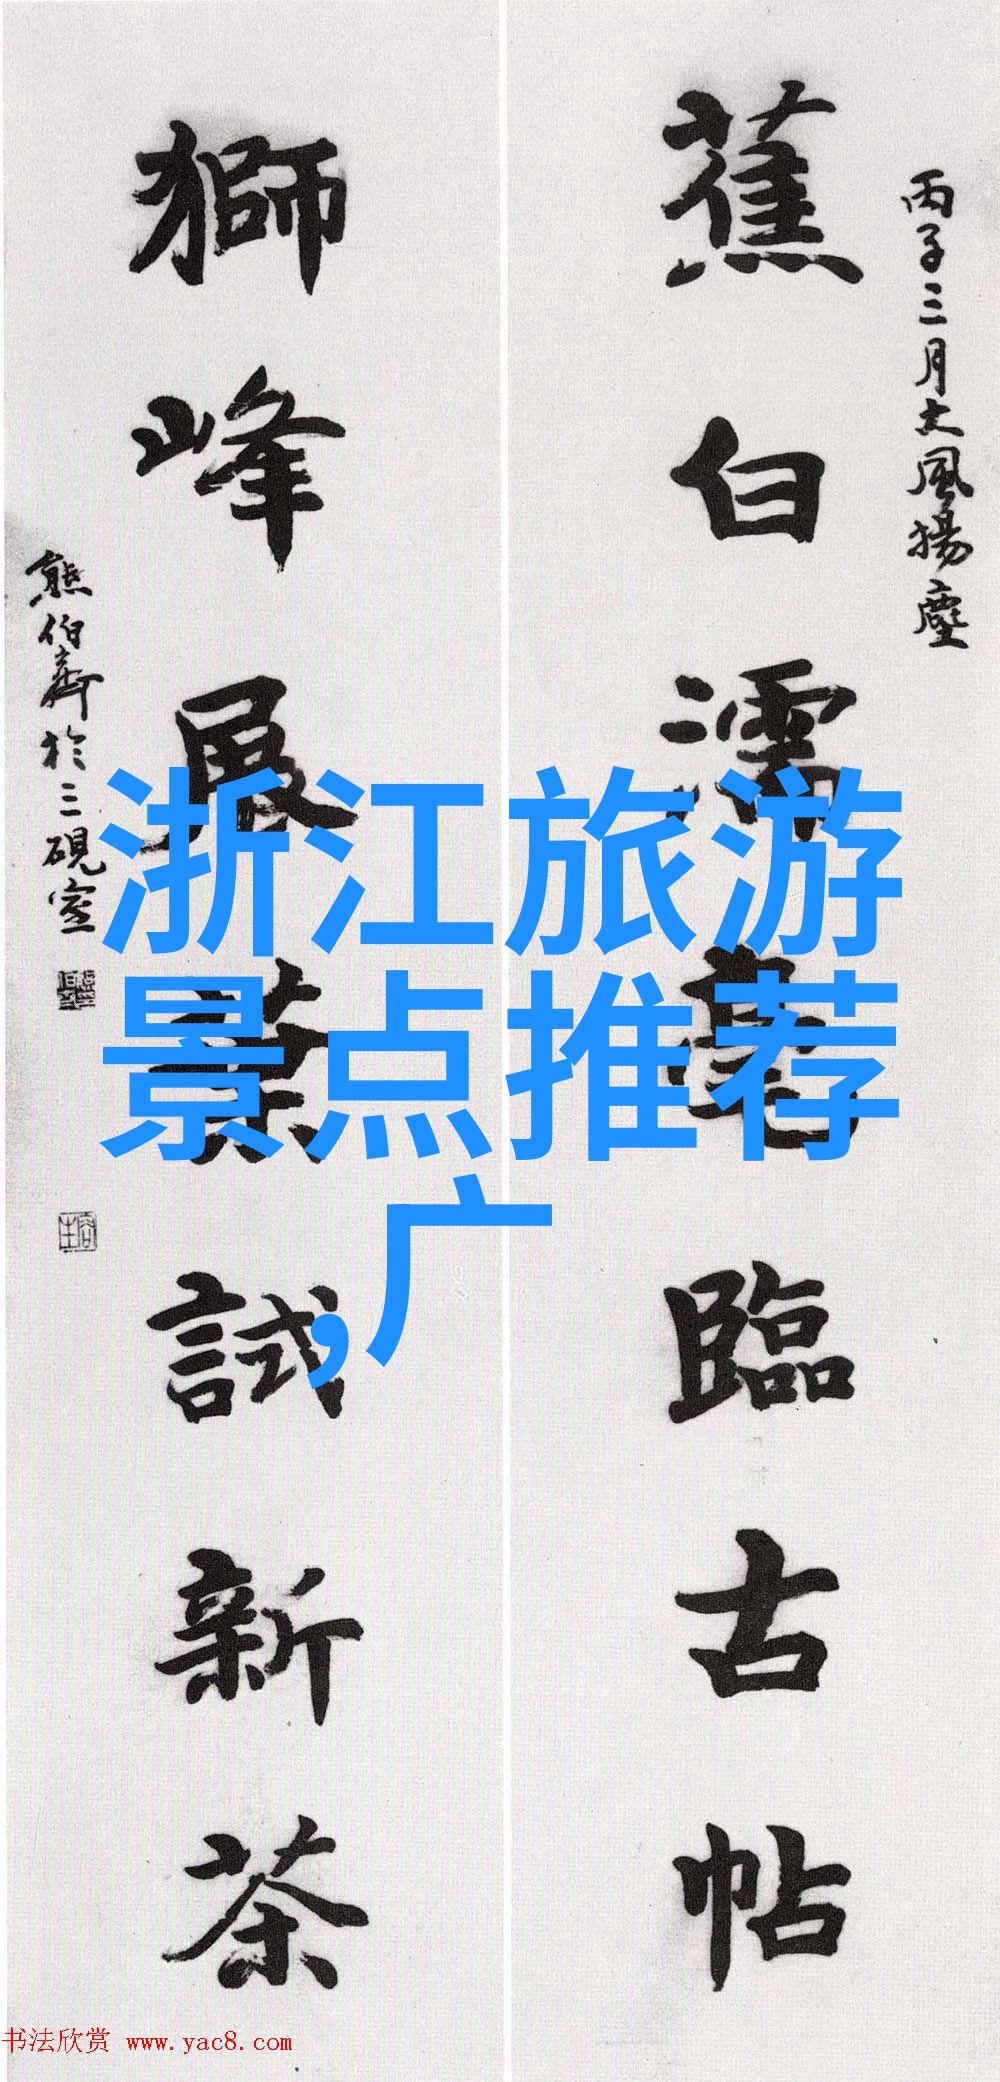 丙子三月大風揚塵
蕉白濡毫臨古帖
獅峰展葉試新茶
熊伯齊於三硯室
浙江旅游
景点推荐
,广
书法欣赏 www.yac8.com